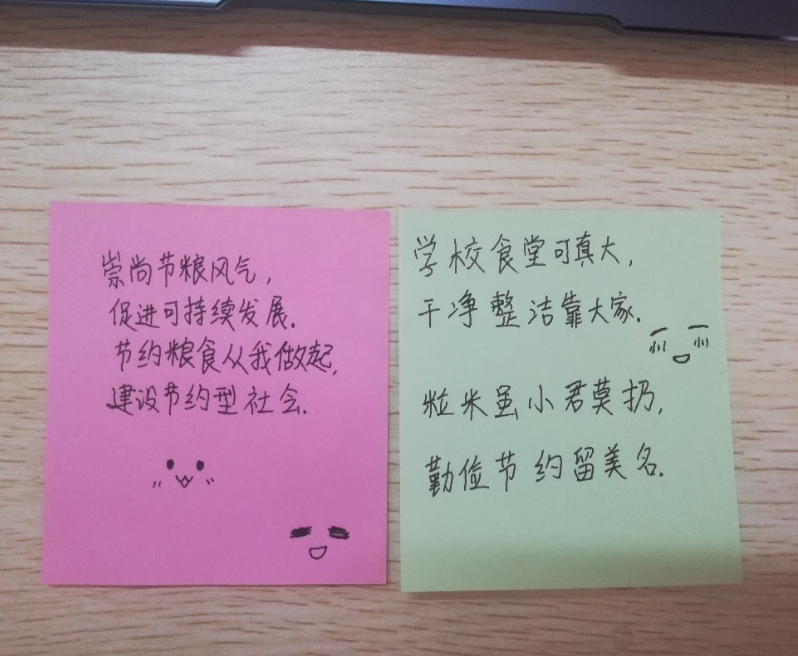 崇尚节粮风气，
促进可持续发展.
节约粮食从我做起,
建设节约型社会.
学校食堂可真大，
干净整洁靠大家.
粒米虽小君莫扔,
勤俭节约留美名.